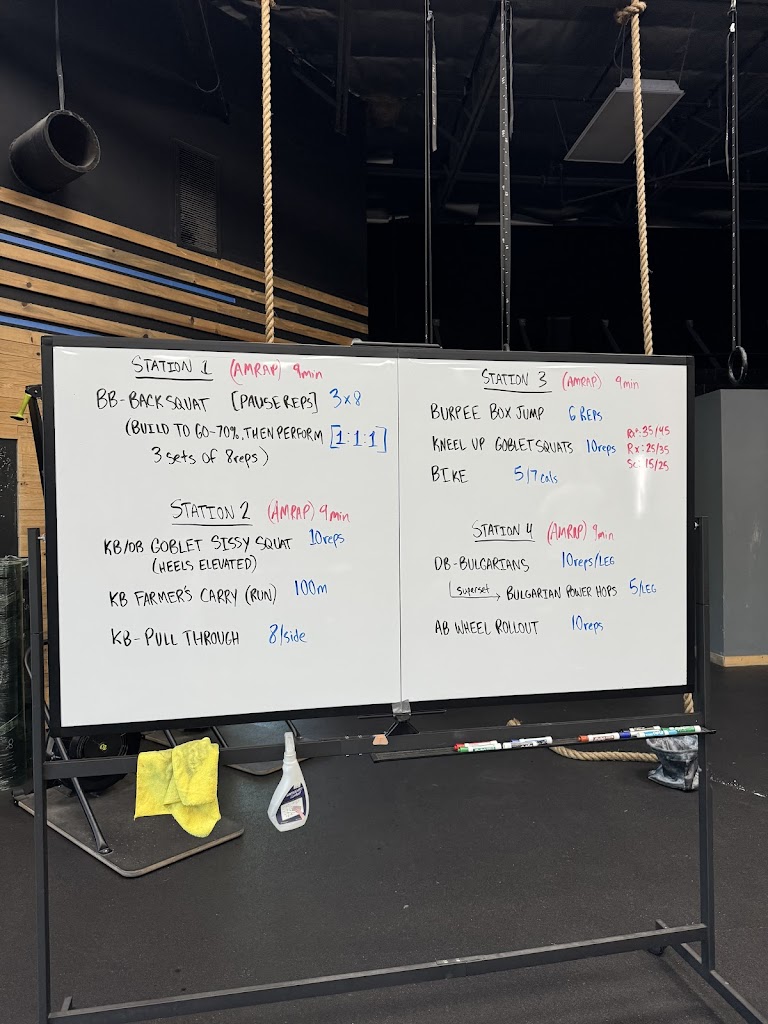 STATION 1 (AMRAP) 9min
BB-BACKSQUAT [PAUSE REPS] 3x8
(BUILD TO 60-70%, THEN PERFORM [1:1:1]
3 sets of 8 reps)
STATION 2 (AMRAP) 9min
KB/DB GOBLET SISSY SQUAT 10reps
(HEELS ELEVATED)
KB FARMER'S CARRY (RUN) 100m
KB-PULL THROUGH 8/side
STATION 3 (AMRAP) 9min
BURPEE BOX JUMP 6 REPS
KNEEL UP GOBLET SQUATS 10reps
Rx+: 35/45
Rx: 25/35
Sc: 15/25
BIKE 5/7 cals
STATION 4 (AMRAP) 9min
DB-BULGARIANS 10reps/LEG
superset → BULGARIAN POWER HOPS 5/LEG
AB WHEEL ROLLOUT 10reps